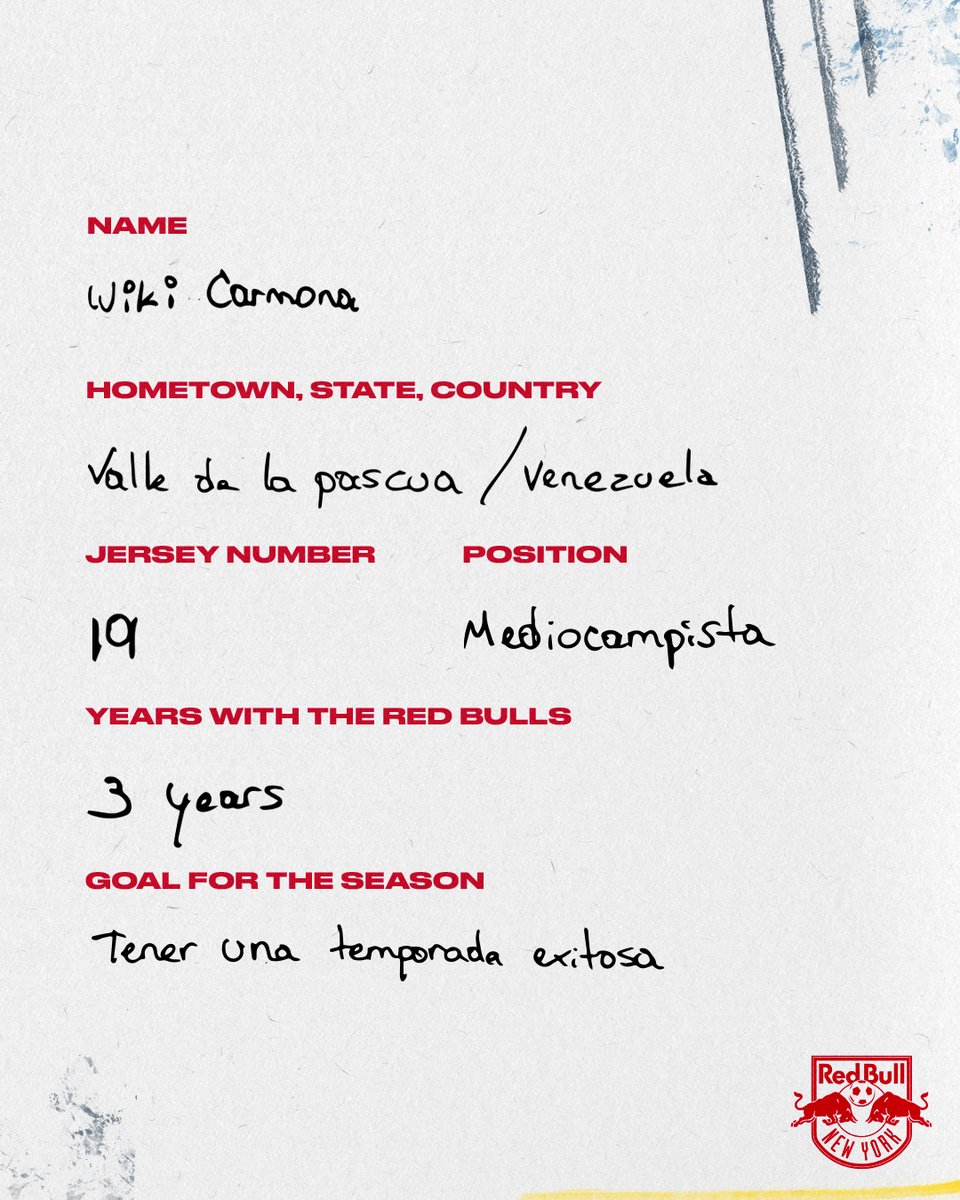 NAME
Wiki Carmona
HOMETOWN, STATE, COUNTRY
Valle de la pascua / Venezuela
JERSEY NUMBER
POSITION
19
Mediocampista
YEARS WITH THE RED BULLS
3 years
GOAL FOR THE SEASON
Tener una temporada exitosa
Red Bull
NEW YORK